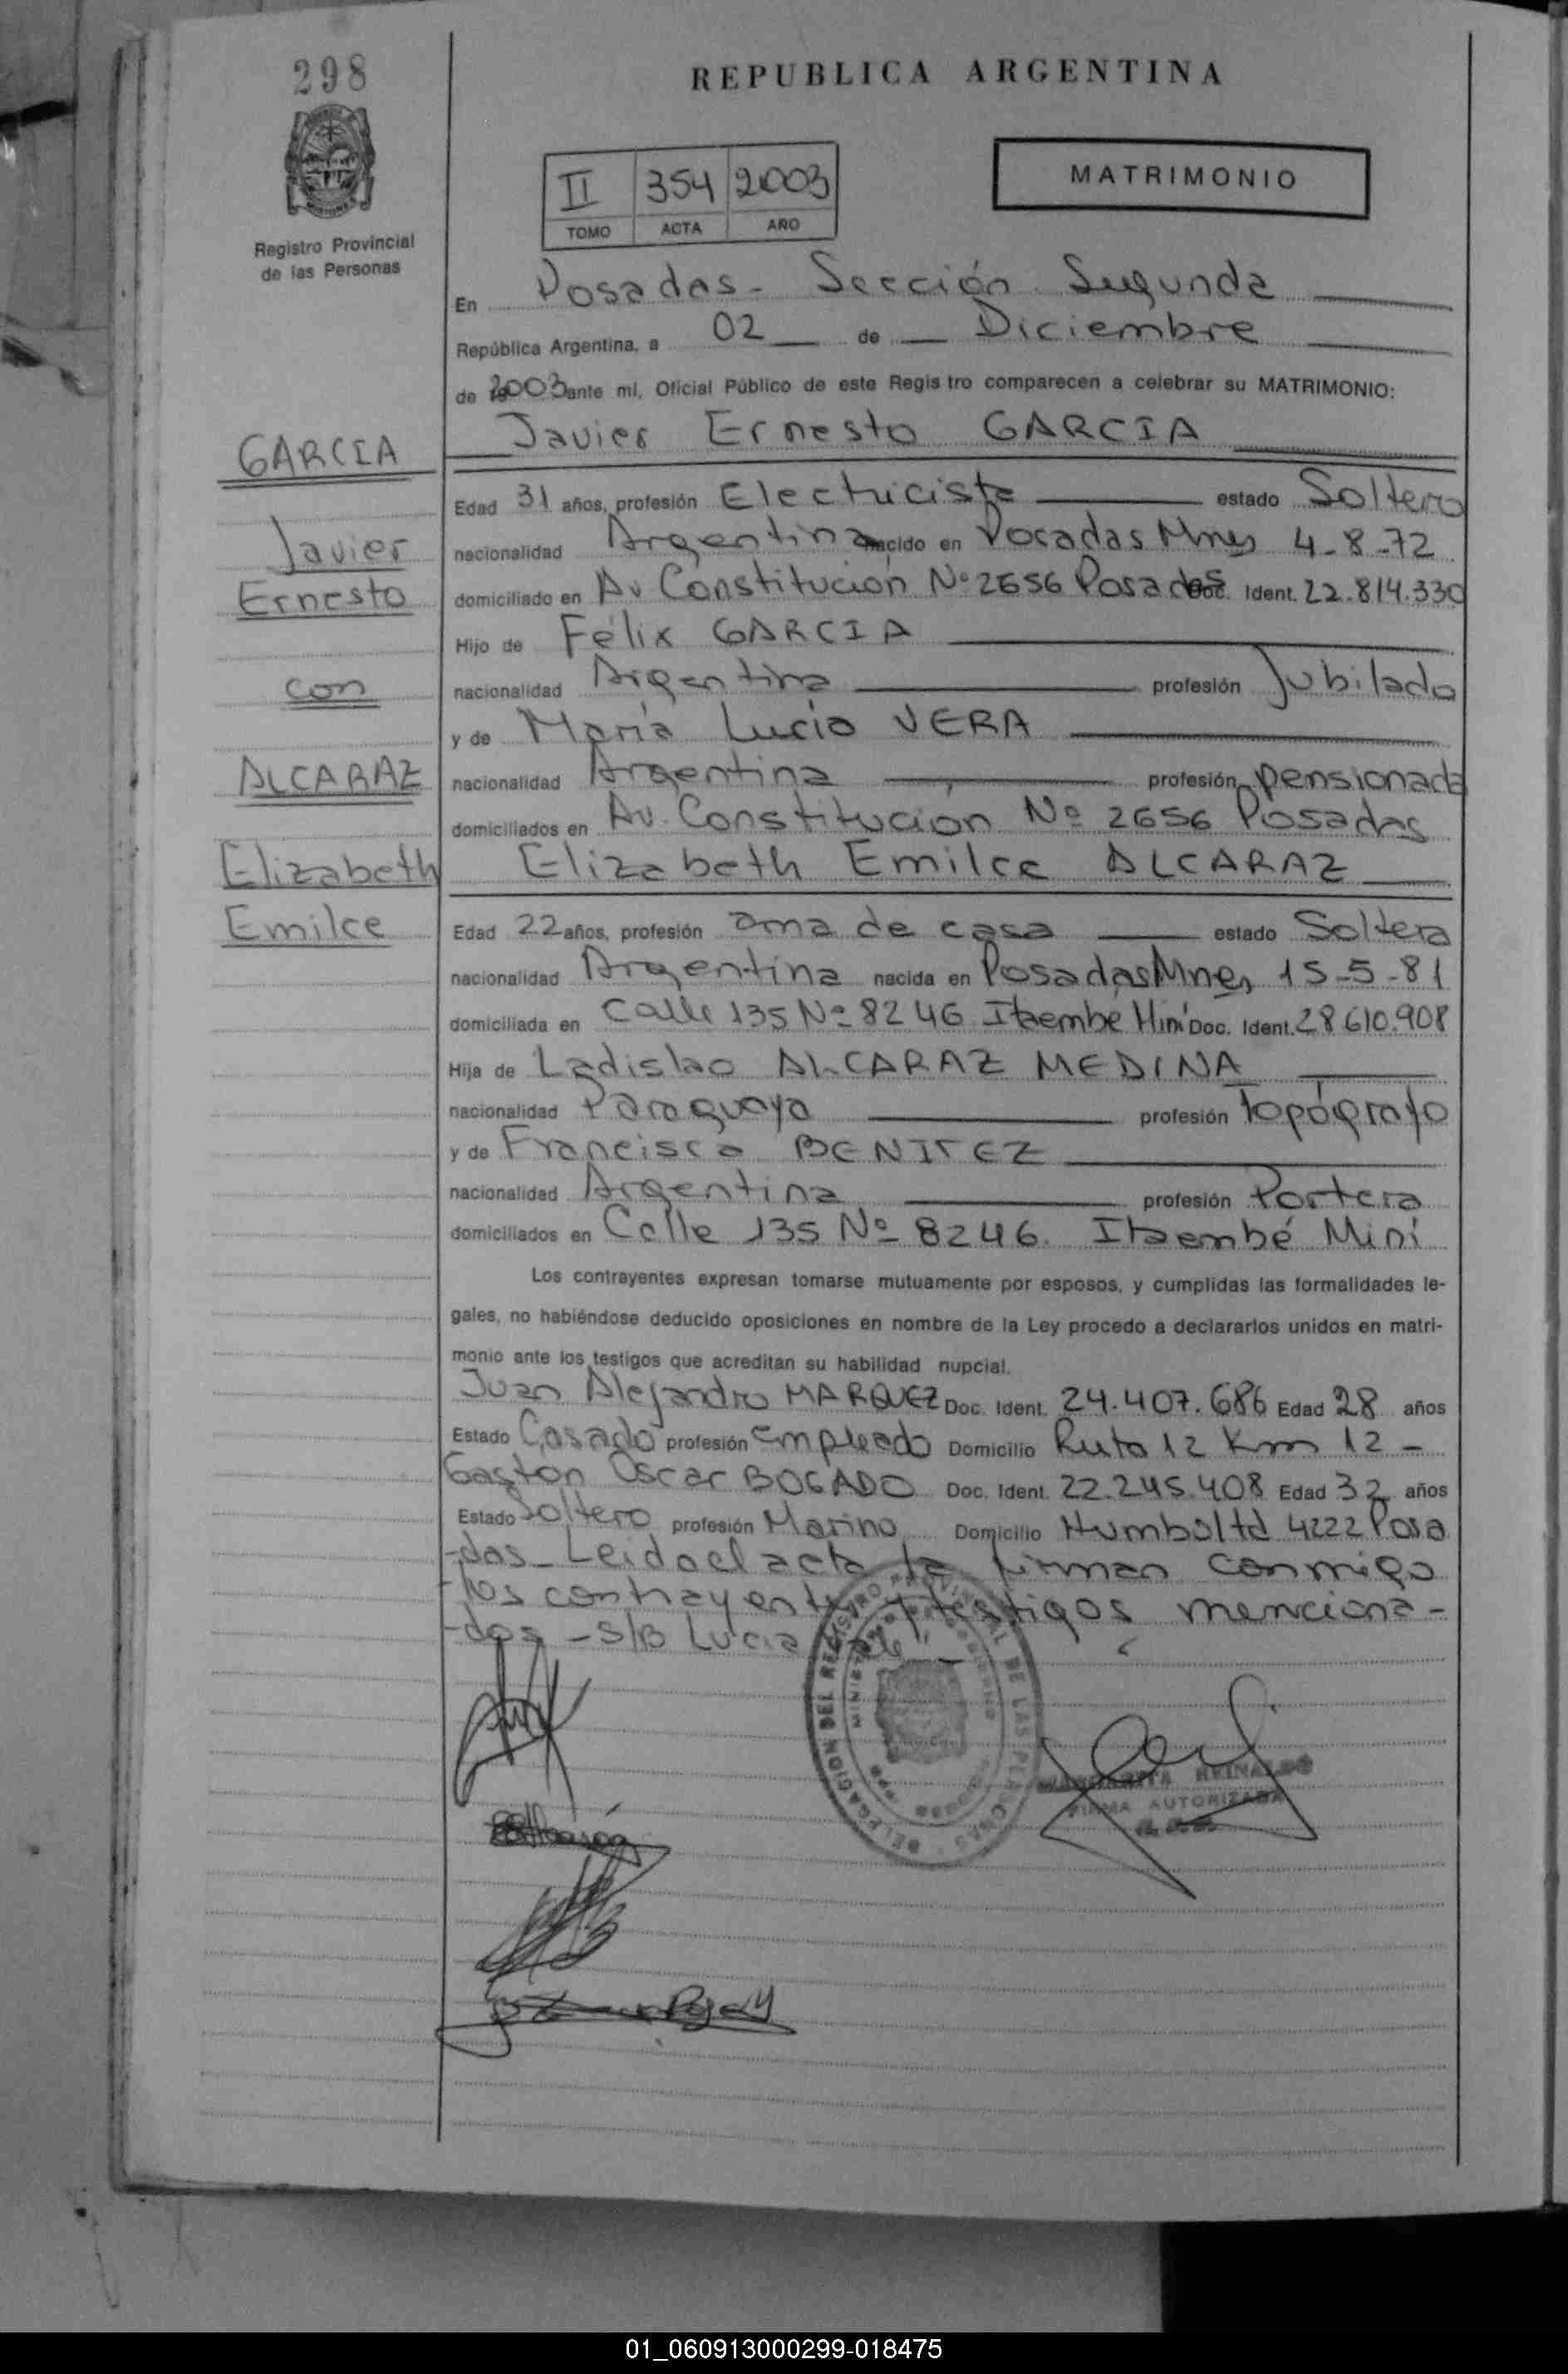 298
REPUBLICA ARGENTINA
MATRIMONIO
II 354 2003
TOMO ACTA AÑO
Registro Provincial
de las Personas
En Posadas - Sección Segunda
República Argentina, a 02 de Diciembre
de 2003 ante mi, Oficial Público de este Registro comparecen a celebrar su MATRIMONIO:
GARCIA
Javier
Ernesto
con
ALCARAZ
Elizabeth
Emilce
Javier Ernesto GARCIA
Edad 31 años, profesión Electricista estado Soltero
nacionalidad Argentina nacido en Posadas Mnes 4-8-72
domiciliado en Av Constitución Nº 2656 Posadas Doc. Ident. 22.814.330
Hijo de Félix GARCIA
nacionalidad Argentina profesión Jubilado
y de María Lucio VERA
nacionalidad Argentina profesión pensionada
domiciliados en Av. Constitución Nº 2656 Posadas
Elizabeth Emilce ALCARAZ
Edad 22 años, profesión ama de casa estado Soltera
nacionalidad Argentina nacida en Posadas Mnes 15-5-81
domiciliada en Calle 135 Nº 8246 Itaembe Miní Doc. Ident. 28.610.908
Hija de Ladislao ALCARAZ MEDINA
nacionalidad Paraguaya profesión Topógrafo
y de Francisca BENITEZ
nacionalidad Argentina profesión Portera
domiciliados en Calle 135 Nº 8246. Itaembé Miní
Los contrayentes expresan tomarse mutuamente por esposos, y cumplidas las formalidades le-
gales, no habiéndose deducido oposiciones en nombre de la Ley procedo a declararlos unidos en matri-
monio ante los testigos que acreditan su habilidad nupcial.
Juan Alejandro MARQUEZ Doc. Ident. 24.407.686 Edad 28 años
Estado Casado profesión Empleado Domicilio Ruta 12 Km 12 -
Gastón Oscar BOGADO Doc. Ident. 22.245.408 Edad 32 años
Estado Soltero profesión Marino Domicilio Humboltd 4222 Posa
-das_ Leida el acta la firman conmigo
-los contrayentes y testigos menciona-
-dos - S/B Lucia
DELEGACION DEL REGISTRO PROVINCIAL DE LAS PERSONAS
MARGARITA REINALDO
FIRMA AUTORIZADA
01_060913000299-018475